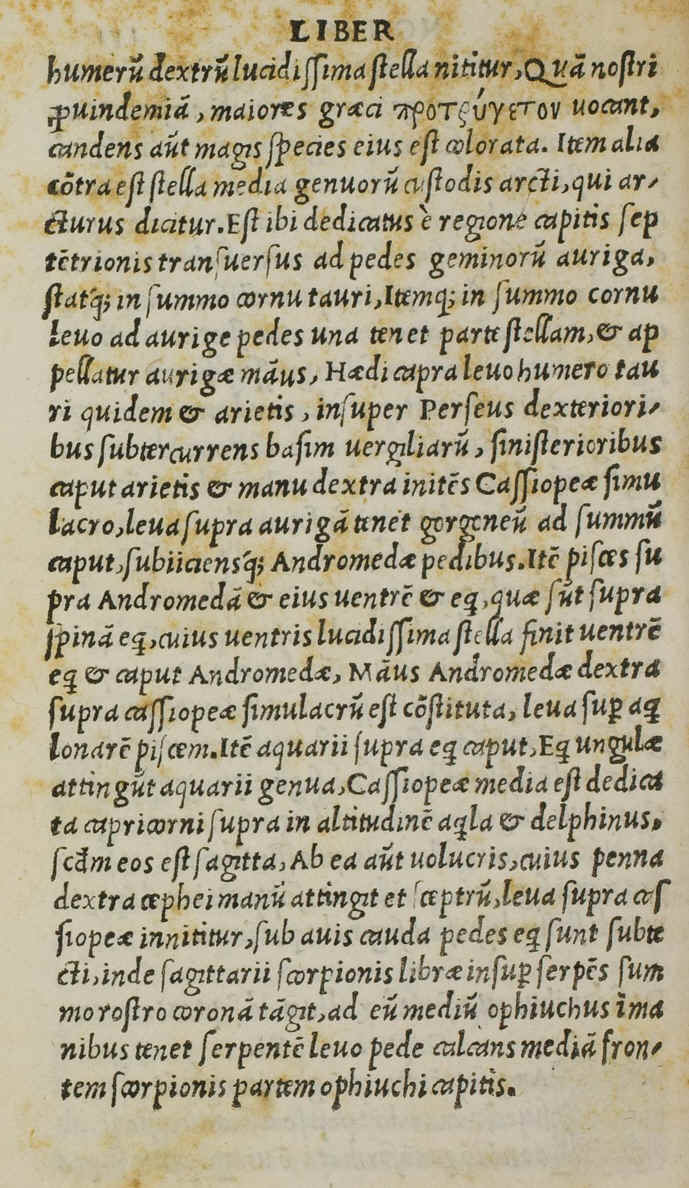 LIBER
humerũ dextrũ lucidissima stella nititur, Quã nostri
ꝓuindemiã, maiores græci προτρύγετον uocant,
candens aũt magis species eius est colorata. Item alia
cõtra est stella media genuorũ custodis arcti, qui ar-
cturus dicitur. Est ibi dedicatus è regione capitis sep
tẽtrionis transuersus ad pedes geminorũ auriga,
statq́; in summo cornu tauri, Itemq; in summo cornu
leuo ad aurige pedes una tenet parte stellam, & ap
pellatur aurigæ mãus, Hædi capra leuo humero tau
ri quidem & arietis, insuper Perseus dexteriori-
bus subtercurrens basim uergiliarũ, sinisterioribus
caput arietis & manu dextra initẽs Cassiopeæ simu
lacro, leua supra aurigã tenet gorgoneũ ad summũ
caput, subiiciensq́; Andromedæ pedibus. Itẽ pisces su
pra Andromedã & eius uentrẽ & eq, quæ sũt supra
spinã eq, cuius uentris lucidissima stella finit uentrẽ
eq & caput Andromedæ, Mãus Andromedæ dextra
supra cassiopeæ simulacrũ est cõstituta, leua suꝑ aq
lonarẽ piscem. Itẽ aquarii supra eq caput, Eq ungulæ
attingũt aquarii genua, Cassiopeæ media est dedica
ta capricorni supra in altitudinẽ aqla & delphinus,
scd̃m eos est sagitta, Ab ea aũt uolucris, cuius penna
dextra cephei manũ attingit et sceptrũ, leua supra cas
siopeæ innititur, sub auis cauda pedes eq sunt subte
cti, inde sagittarii scorpionis libræ insuꝑ serpẽs sum
mo rostro coronã tãgit, ad eũ mediũ ophiuchus ĩ ma
nibus tenet serpentẽ leuo pede calcans mediã fron-
tem scorpionis partem ophiuchi capitis.